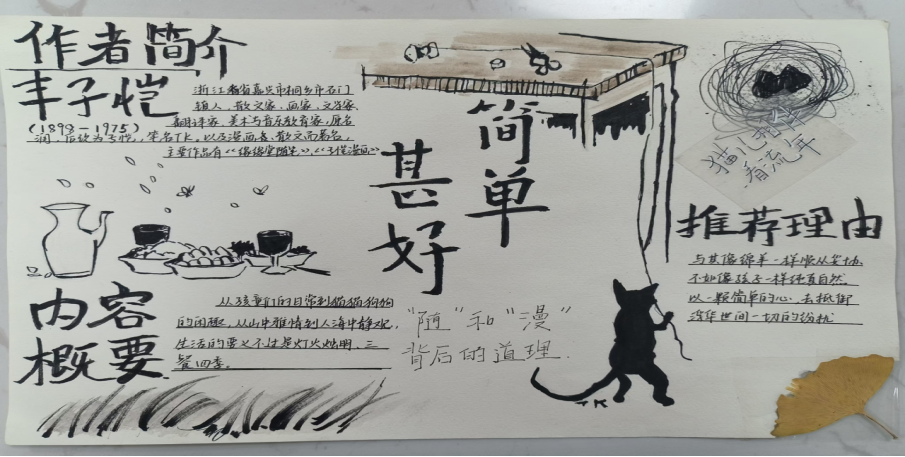 作者简介
丰子恺
(1898-1975)
浙江省嘉兴市桐乡市石门
镇人，散文家、画家、文学家、
翻译家、美术与音乐教育家，原名
润，后改为子恺，笔名TK，以漫画、散文而著名。
主要作品有《缘缘堂随笔》、《子恺漫画》
内容
概要
从孩童们的日常到猫猫狗狗
的闲趣，从山中雅情到人海中静观，
生活的要义不过是灯火灿明，三
餐四季。
简单
甚好
"随"和"漫"
背后的道理.
TK
猫儿相伴
看流年
推荐理由
与其像绵羊一样顺从妥协
不如像孩子一样纯真自然
以一颗简单的心，去抵御
这华世间一切的纷扰